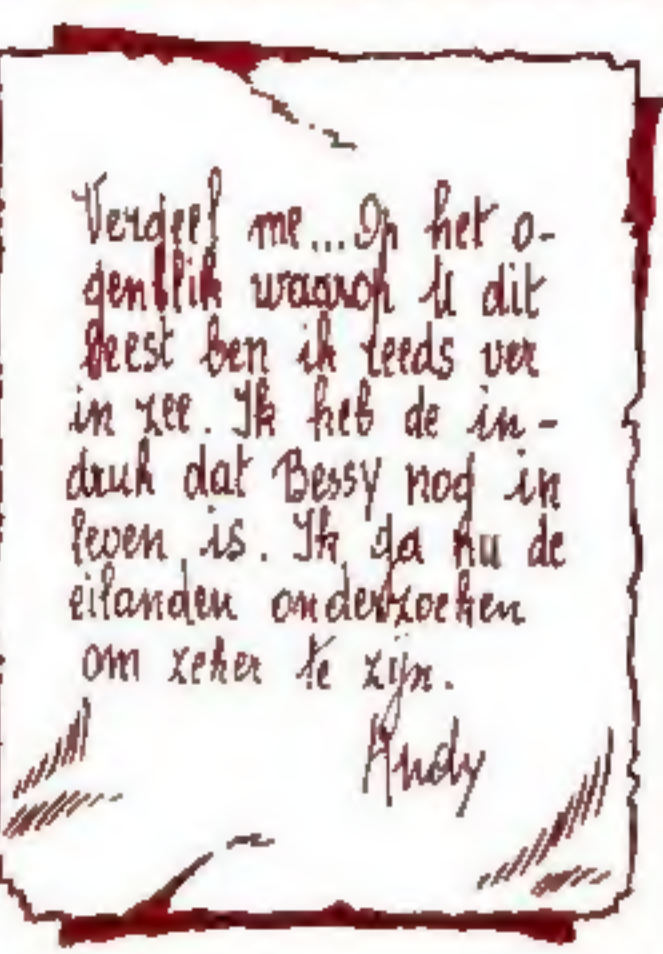 Vergeef me... Op het o-
genblik waarop U dit
leest ben ik reeds ver
in zee. Ik heb de in-
druk dat Bessy nog in
leven is. Ik ga nu de
eilanden onderzoeken
om zeker te zijn.
Andy